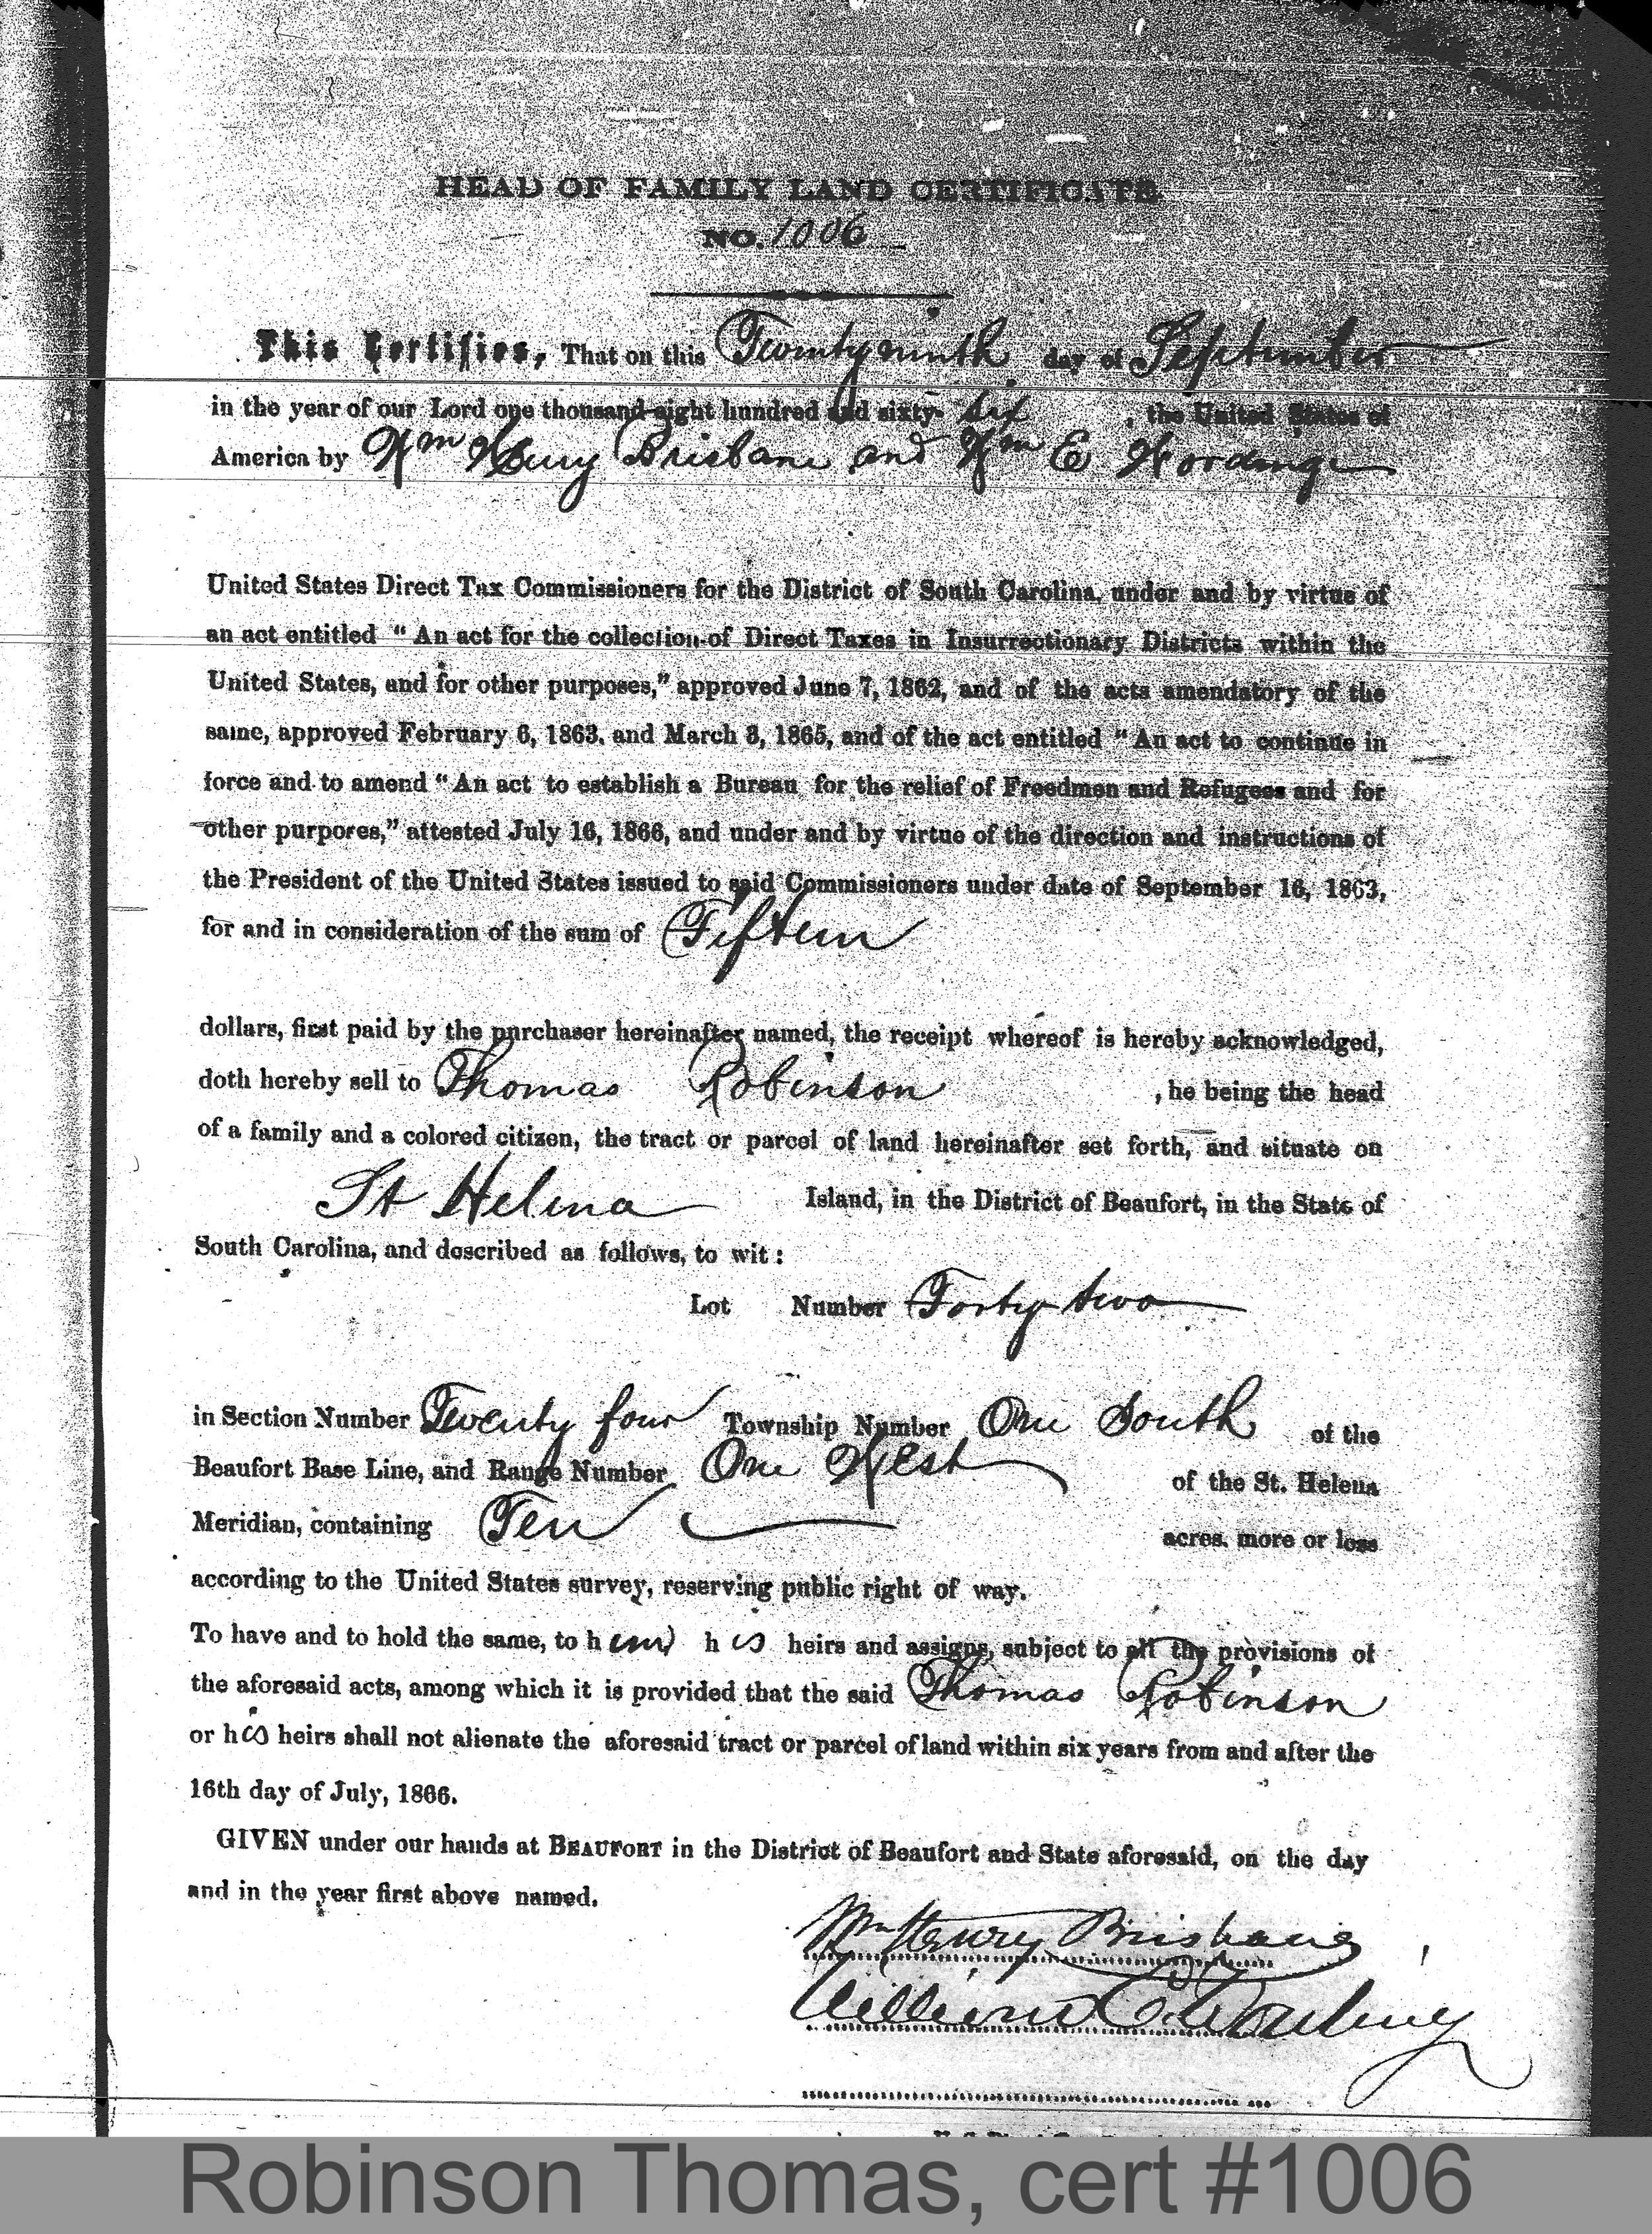 HEAD OF FAMILY LAND CERTIFICATE
NO. 1006
This Certifies, That on this Twenty ninth day of September
in the year of our Lord one thousand eight hundred and sixty- six, the United States of
America by Wm Henry Brisbane and Wm E Wording
United States Direct Tax Commissioners for the District of South Carolina, under and by virtue of
an act entitled “ An act for the collection of Direct Taxes in Insurrectionary Districts within the
United States, and for other purposes,” approved June 7, 1862, and of the acts amendatory of the
same, approved February 6, 1863, and March 3, 1865, and of the act entitled “ An act to continue in
force and to amend “ An act to establish a Bureau for the relief of Freedmen and Refugees and for
other purpores,” attested July 16, 1866, and under and by virtue of the direction and instructions of
the President of the United States issued to said Commissioners under date of September 16, 1863,
for and in consideration of the sum of Fifteen
dollars, first paid by the purchaser hereinafter named, the receipt whereof is hereby acknowledged,
doth hereby sell to Thomas Robinson , he being the head
of a family and a colored citizen, the tract or parcel of land hereinafter set forth, and situate on
St Helena Island, in the District of Beaufort, in the State of
South Carolina, and described as follows, to wit :
Lot Number Forty two
in Section Number Twenty four Township Number One South of the
Beaufort Base Line, and Range Number One West of the St. Helena
Meridian, containing Ten acres, more or less
according to the United States survey, reserving public right of way.
To have and to hold the same, to him his heirs and assigns, subject to all the provisions of
the aforesaid acts, among which it is provided that the said Thomas Robinson
or his heirs shall not alienate the aforesaid tract or parcel of land within six years from and after the
16th day of July, 1866.
GIVEN under our hands at BEAUFORT in the District of Beaufort and State aforesaid, on the day
and in the year first above named.
Wm Henry Brisbane
William E. Wording
Robinson Thomas, cert #1006